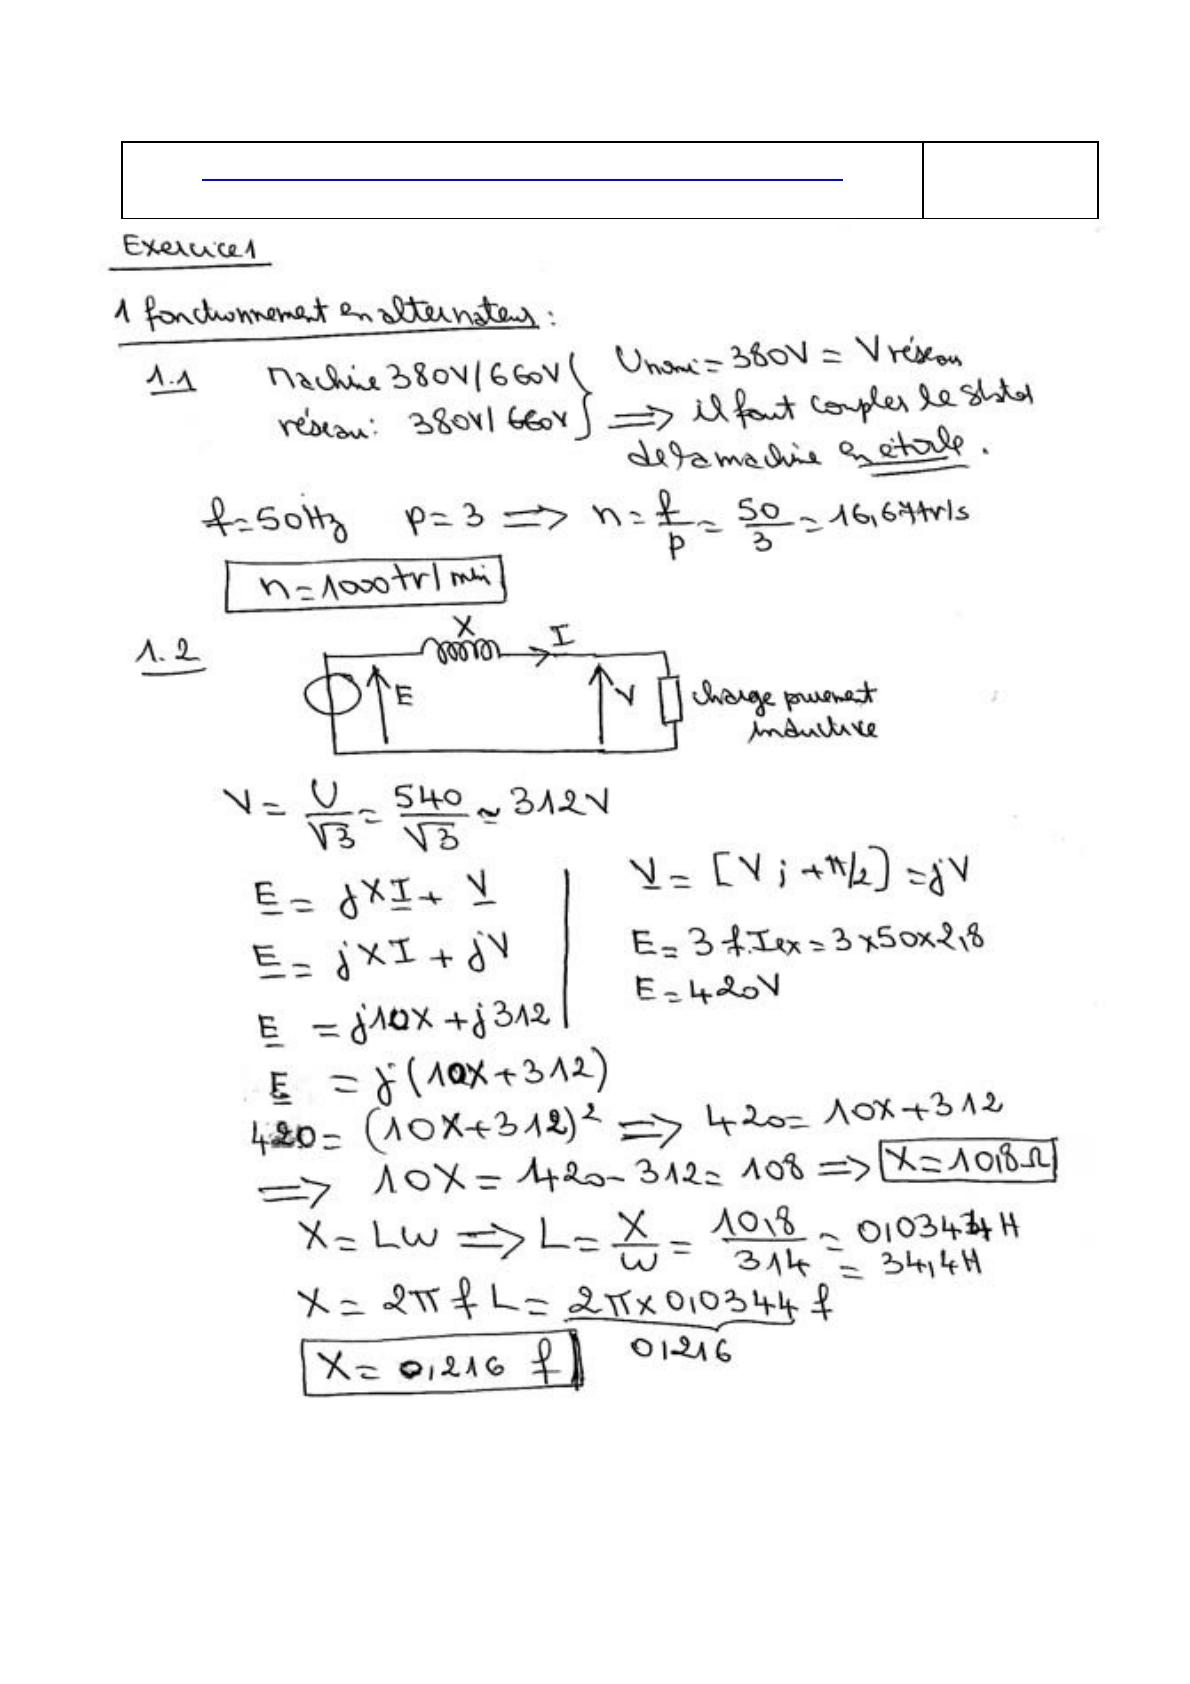 Exercice 1
1 fonctionnement en alternateur :
1.1 Machine 380V/660V } Unomi = 380V = Vréseau
réseau : 380V/660V } ⟹ il faut coupler le stator
de la machine en étoile.
f = 50Hz p = 3 ⟹ n = f/p = 50/3 = 16,67tr/s
n = 1000tr/min
1.2
X I
E V charge purement
inductive
V = U/√3 = 540/√3 ≃ 312V
E = jXI + V
E = jXI + jV
E = j10X + j312
E = j(10X + 312)
V = [V ; +π/2] = jV
E = 3 f.Iex = 3 x 50 x 2,8
E = 420V
420 = (10X + 312)² ⟹ 420 = 10X + 312
⟹ 10X = 420 - 312 = 108 ⟹ X = 10,8Ω
X = LW ⟹ L = X/W = 10,8/314 = 0,0344 H
= 34,4H
X = 2π f L = 2π x 0,0344 f
0,216
X = 0,216 f